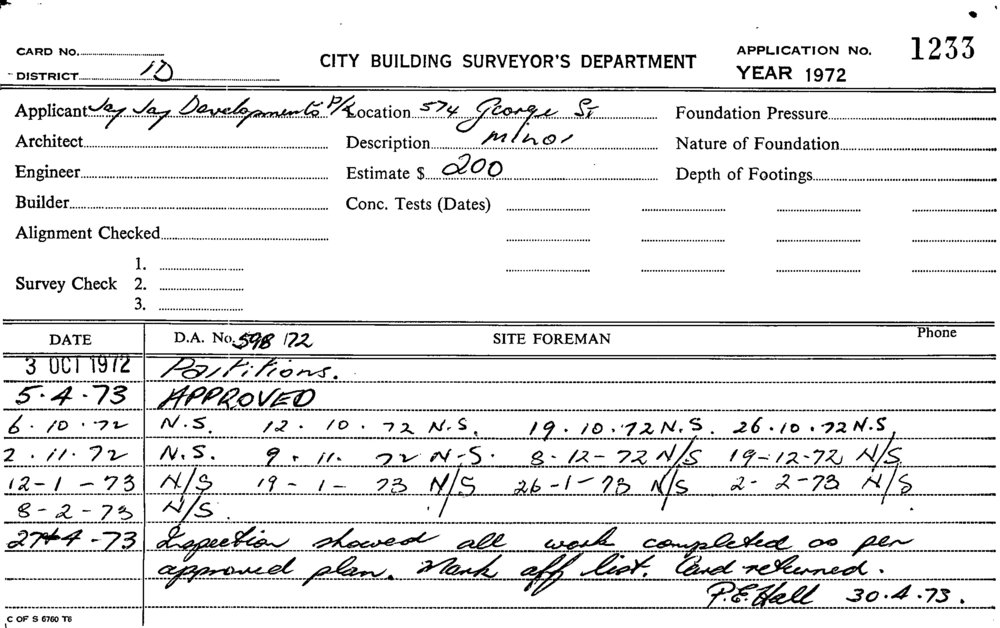 CARD NO. CITY BUILDING SURVEYOR'S DEPARTMENT APPLICATION NO. 1233
DISTRICT 1D YEAR 1972
Applicant Jay Jay Developments P/L Location 574 George St Foundation Pressure
Architect Description minor Nature of Foundation
Engineer Estimate $ 200 Depth of Footings
Builder Conc. Tests (Dates)
Alignment Checked
1.
Survey Check 2.
3.
DATE D.A. No. 598/72 SITE FOREMAN Phone
3 OCT 1972 Partitions.
5.4.73 APPROVED
6.10.72 N.S. 12.10.72 N.S. 19.10.72 N.S. 26.10.72 N.S.
2.11.72 N.S. 9.11.72 N.S. 8-12-72 N/S 19-12-72 N/S
12-1-73 N/S 19-1-73 N/S 26-1-73 N/S 2-2-73 N/S
8-2-73 N/S.
27-4-73 Inspection showed all work completed as per
approved plan. Mark off list. Card returned.
P.E. Hall 30.4.73.
C OF S 6760 T6